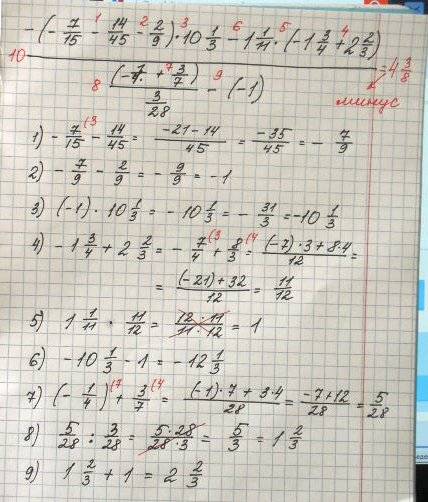 -(-7/15 - 14/45 - 2/9) · 10 1/3 - 1 1/11 · (-1 3/4 + 2 2/3)
1 2 3 6 5 4
10 = 4 3/8
8 7 9
+ 3/7) / 3/28 - (-1)
минус
1) -7/15 (3 - 14/45 = -21-14/45 = -35/45 = -7/9
2) -7/9 - 2/9 = -9/9 = -1
3) (-1) · 10 1/3 = -10 1/3 = -31/3 = -10 1/3
4) -1 3/4 + 2 2/3 = -7/4 (3 + 8/3 (4 = (-7)·3+8·4/12 =
= (-21)+32/12 = 11/12
5) 1 1/11 · 11/12 = 12·11/11·12 = 1
6) -10 1/3 - 1 = -12 1/3
7) (-1/4) (7 + 3/7 (4 = (-1)·7+3·4/28 = -7+12/28 = 5/28
8) 5/28 : 3/28 = 5·28/28·3 = 5/3 = 1 2/3
9) 1 2/3 + 1 = 2 2/3